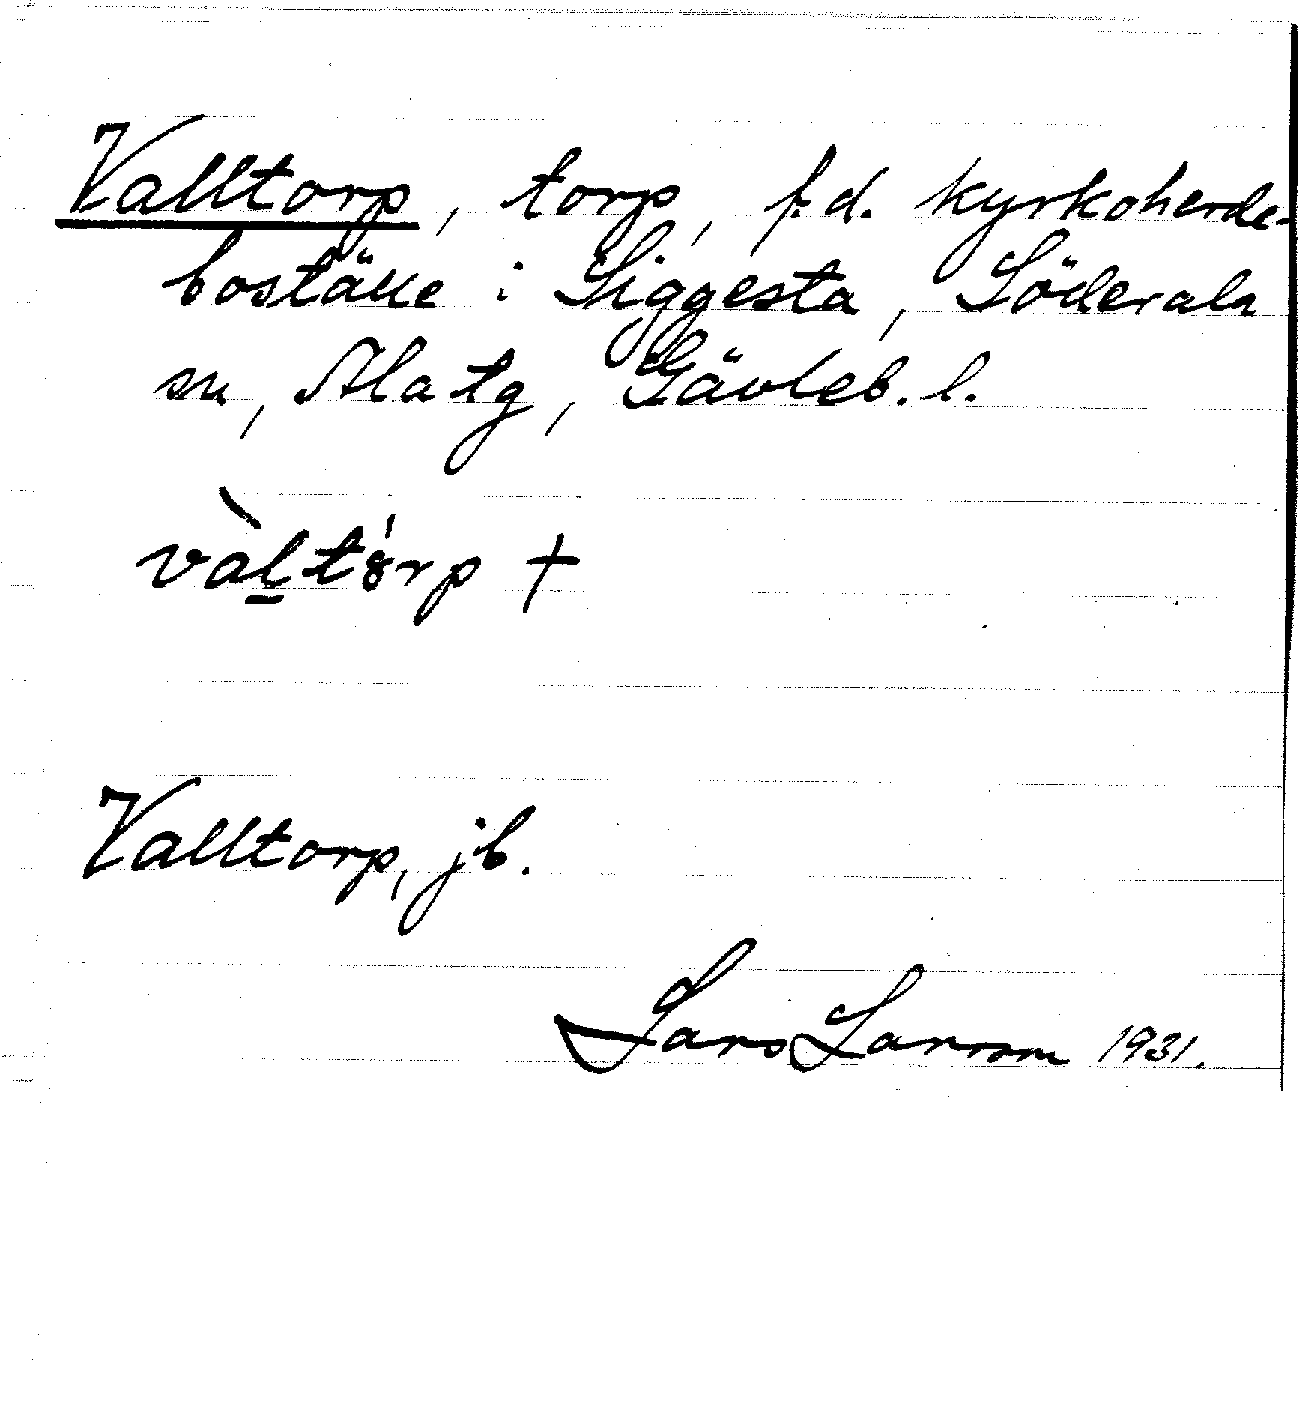 Valltorp, torp, f.d. kyrkoherde-
boställe i Siggesta, Söderala
sn, Ala tg, Gävleb. l.
vàl̠tó̤rp +
Valltorp, jb.
Lars Larsson 1931.